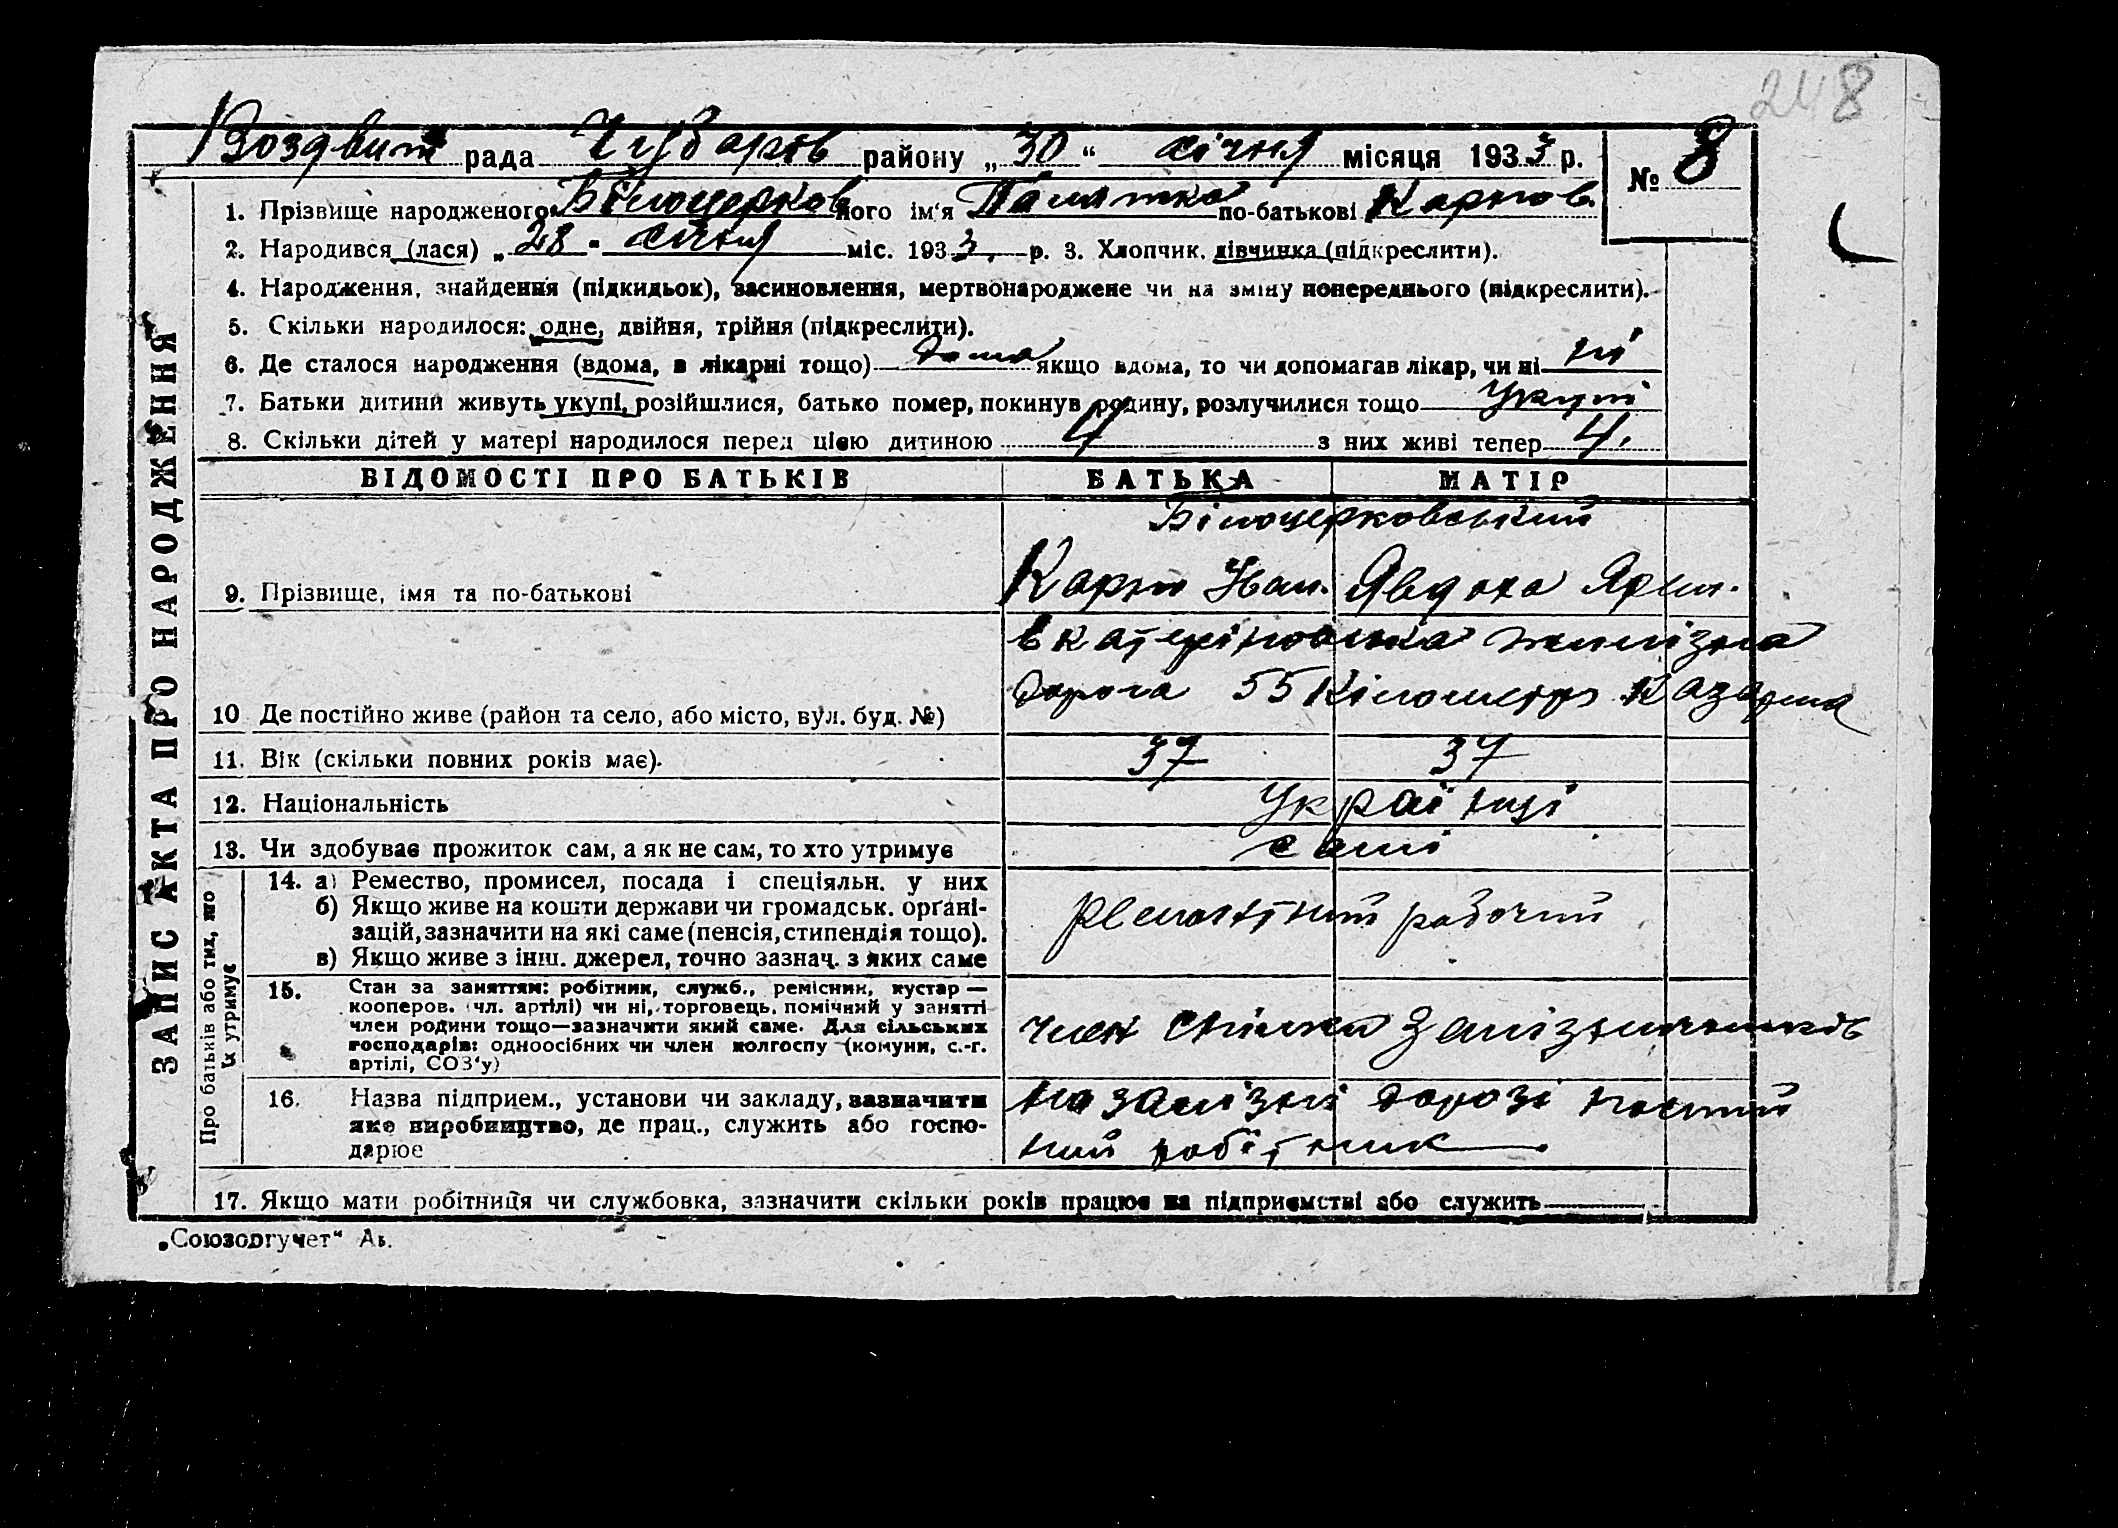 248
Воздвиж рада Чубарів району „30“ січня місяця 1933 р. № 8
1. Прізвище народженого Білоцерков його ім'я по-батькові Карпов.
2. Народився (лася) „28" січня міс. 1933. р. 3. Хлопчик, дівчинка (підкреслити).
4. Народження, знайдення (підкидьок), засиновлення, мертвонароджене чи на зміну попереднього (підкреслити).
5. Скільки народилося: одне, двійня, трійня (підкреслити).
6. Де сталося народження (вдома, в лікарні тощо) дома якщо вдома, то чи допомагав лікар, чи ні ні
7. Батьки дитини живуть укупі, розійшлися, батько помер, покинув родину, розлучилися тощо укупі
8. Скільки дітей у матері народилося перед цією дитиною 4 з них живі тепер 4.
ЗАПИС АКТА ПРО НАРОДЖЕННЯ
ВІДОМОСТІ ПРО БАТЬКІВ БАТЬКА МАТІР
Білоцерковський
9. Прізвище, імя та по-батькові Карпо Іван. Явдоха Ярем.
катеріновська желізна
10 Де постійно живе (район та село, або місто, вул. буд. №) дорога 55 кілометр Казарма
11. Вік (скільки повних років має). 37 37
12. Національність Українці
13. Чи здобуває прожиток сам, а як не сам, то хто утримує самі
Про батьків або тих, хто їх утримує
14. а) Ремество, промисел, посада і спеціяльн. у них
б) Якщо живе на кошти держави чи громадськ. органі-
зацій, зазначити на які саме (пенсія, стипендія тощо).
в) Якщо живе з інш. джерел, точно зазнач. з яких саме
ремонтний рабочий
15. Стан за заняттям: робітник, служб., ремісник, кустар —
кооперов. (чл. артілі) чи ні, торговець, помічний у занятті
член родини тощо—зазначити який саме. Для сільських
господарів: одноосібних чи член колгоспу (комуни, с.-г.
артілі, СОЗ'у)
член спілки Залізничників
16. Назва підприєм., установи чи закладу, зазначити
яке виробництво, де прац., служить або госпо-
дарює
на залізні дорозі постий
ний робітник
17. Якщо мати робітниця чи службовка, зазначити скільки років працює на підприємстві або служить
„Союзоргучет“